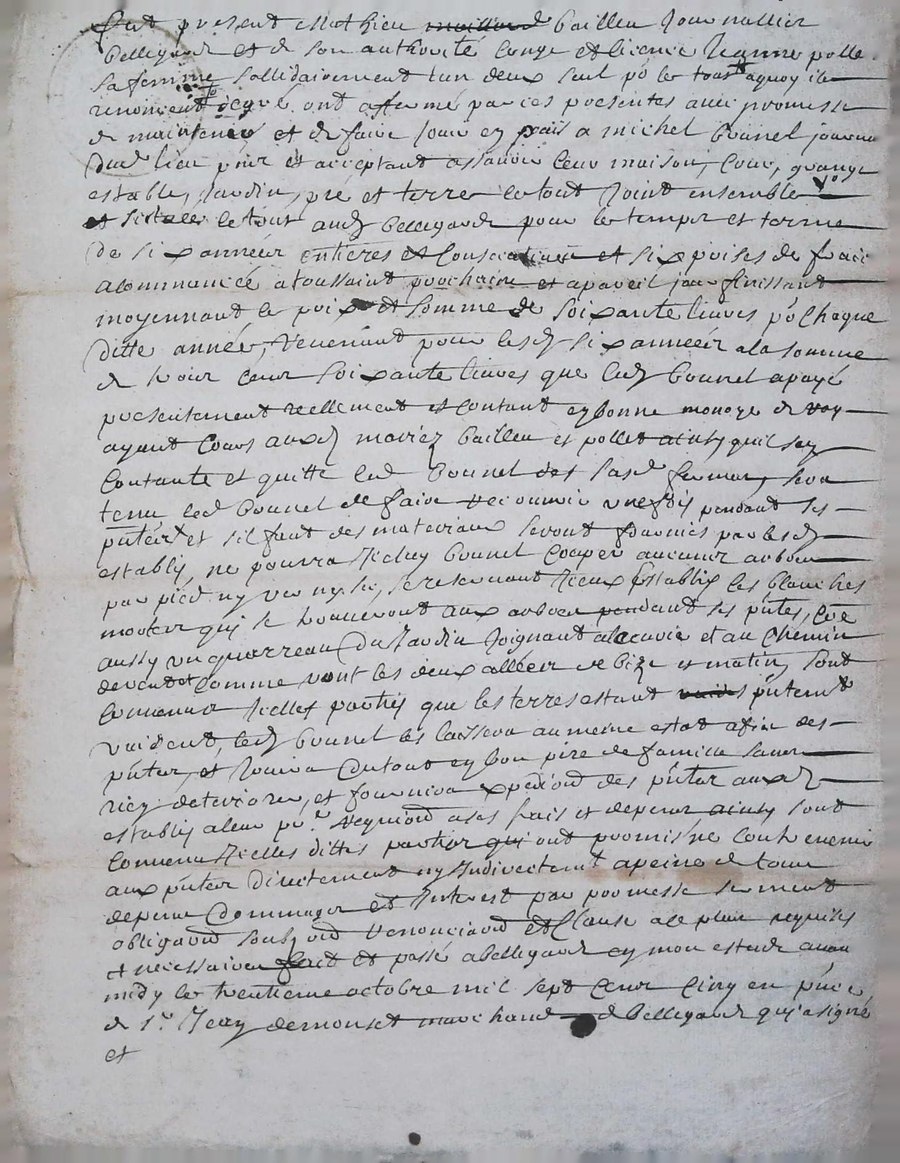 Fut present Mathieu bailleu Journallier
bellegarde et de son authorité conge et licence Jeanne polle
sa femme sollidairement l'un deux seul po le tout aquoy ils
renoncent de gré, ont affermé par ces presentes avec promesse
de maintenir et de faire Jouir en paix a michel bounel journa
dud lieu pnt et acceptant assavoir leur maison, cour, grange
estable, Jardin, pré et terre le tout Joint ensemble
et scituée le tout aud bellegarde pour le temps et terme
de six années entieres et consecutives et six prises de fruict
a commancé a toussaint prochaine et a pareil jour finissant
moyennant le prix et somme de soixante livres po chaque
ditte année, revenant pour lesd six années a la somme
de trois cent soixante livres que led bounel a payé
presentement reellement et contant en bonne monoye de roy
ayant cours auxd mariez bailleu et pollet ainsy quil sen
contante et quitte led bounel sera
tenu led bounel de faire recouvrir une fois pendant ses
pntes et sil faut des materiaux seront fournies par lesd
establis, ne pourra Icelluy bounel cooper aucuns arbres
par pied ny ver ny sec, se reservant Iceux Establis les blanches
mortes qui se trouveront aux arbres pendant ses pntes, co͞e
aussy un quarreau du Jardin Joignant a la curie et au chemin
devant et comme vont les deux allées de bize et matin, sont
convenus Icelles parties que les terres estant pntement
vuident, led bounel les laissera au meme estat a fin des
pntes, et Jouira du tout en bon pere de famille sans
rien deteriorer, et fournira expediond des pntes auxd
establis a leur pre requiond a ses frais et depens ainsy sont
convenus Icelles dittes parties qui ont promis ne contrevenir
aux pntes directement ny Indirectement a peine de tous
depens dommages et Interest par promesse serment
obligaond soubzond renonciaond et clause a ce plain requises
et necessaires et passé a bellegarde en mon estude avan
midy le trentieme octobre mil sept cent cinq en pnce
de sr Jean demonset marchand de bellegarde qui a signé
et